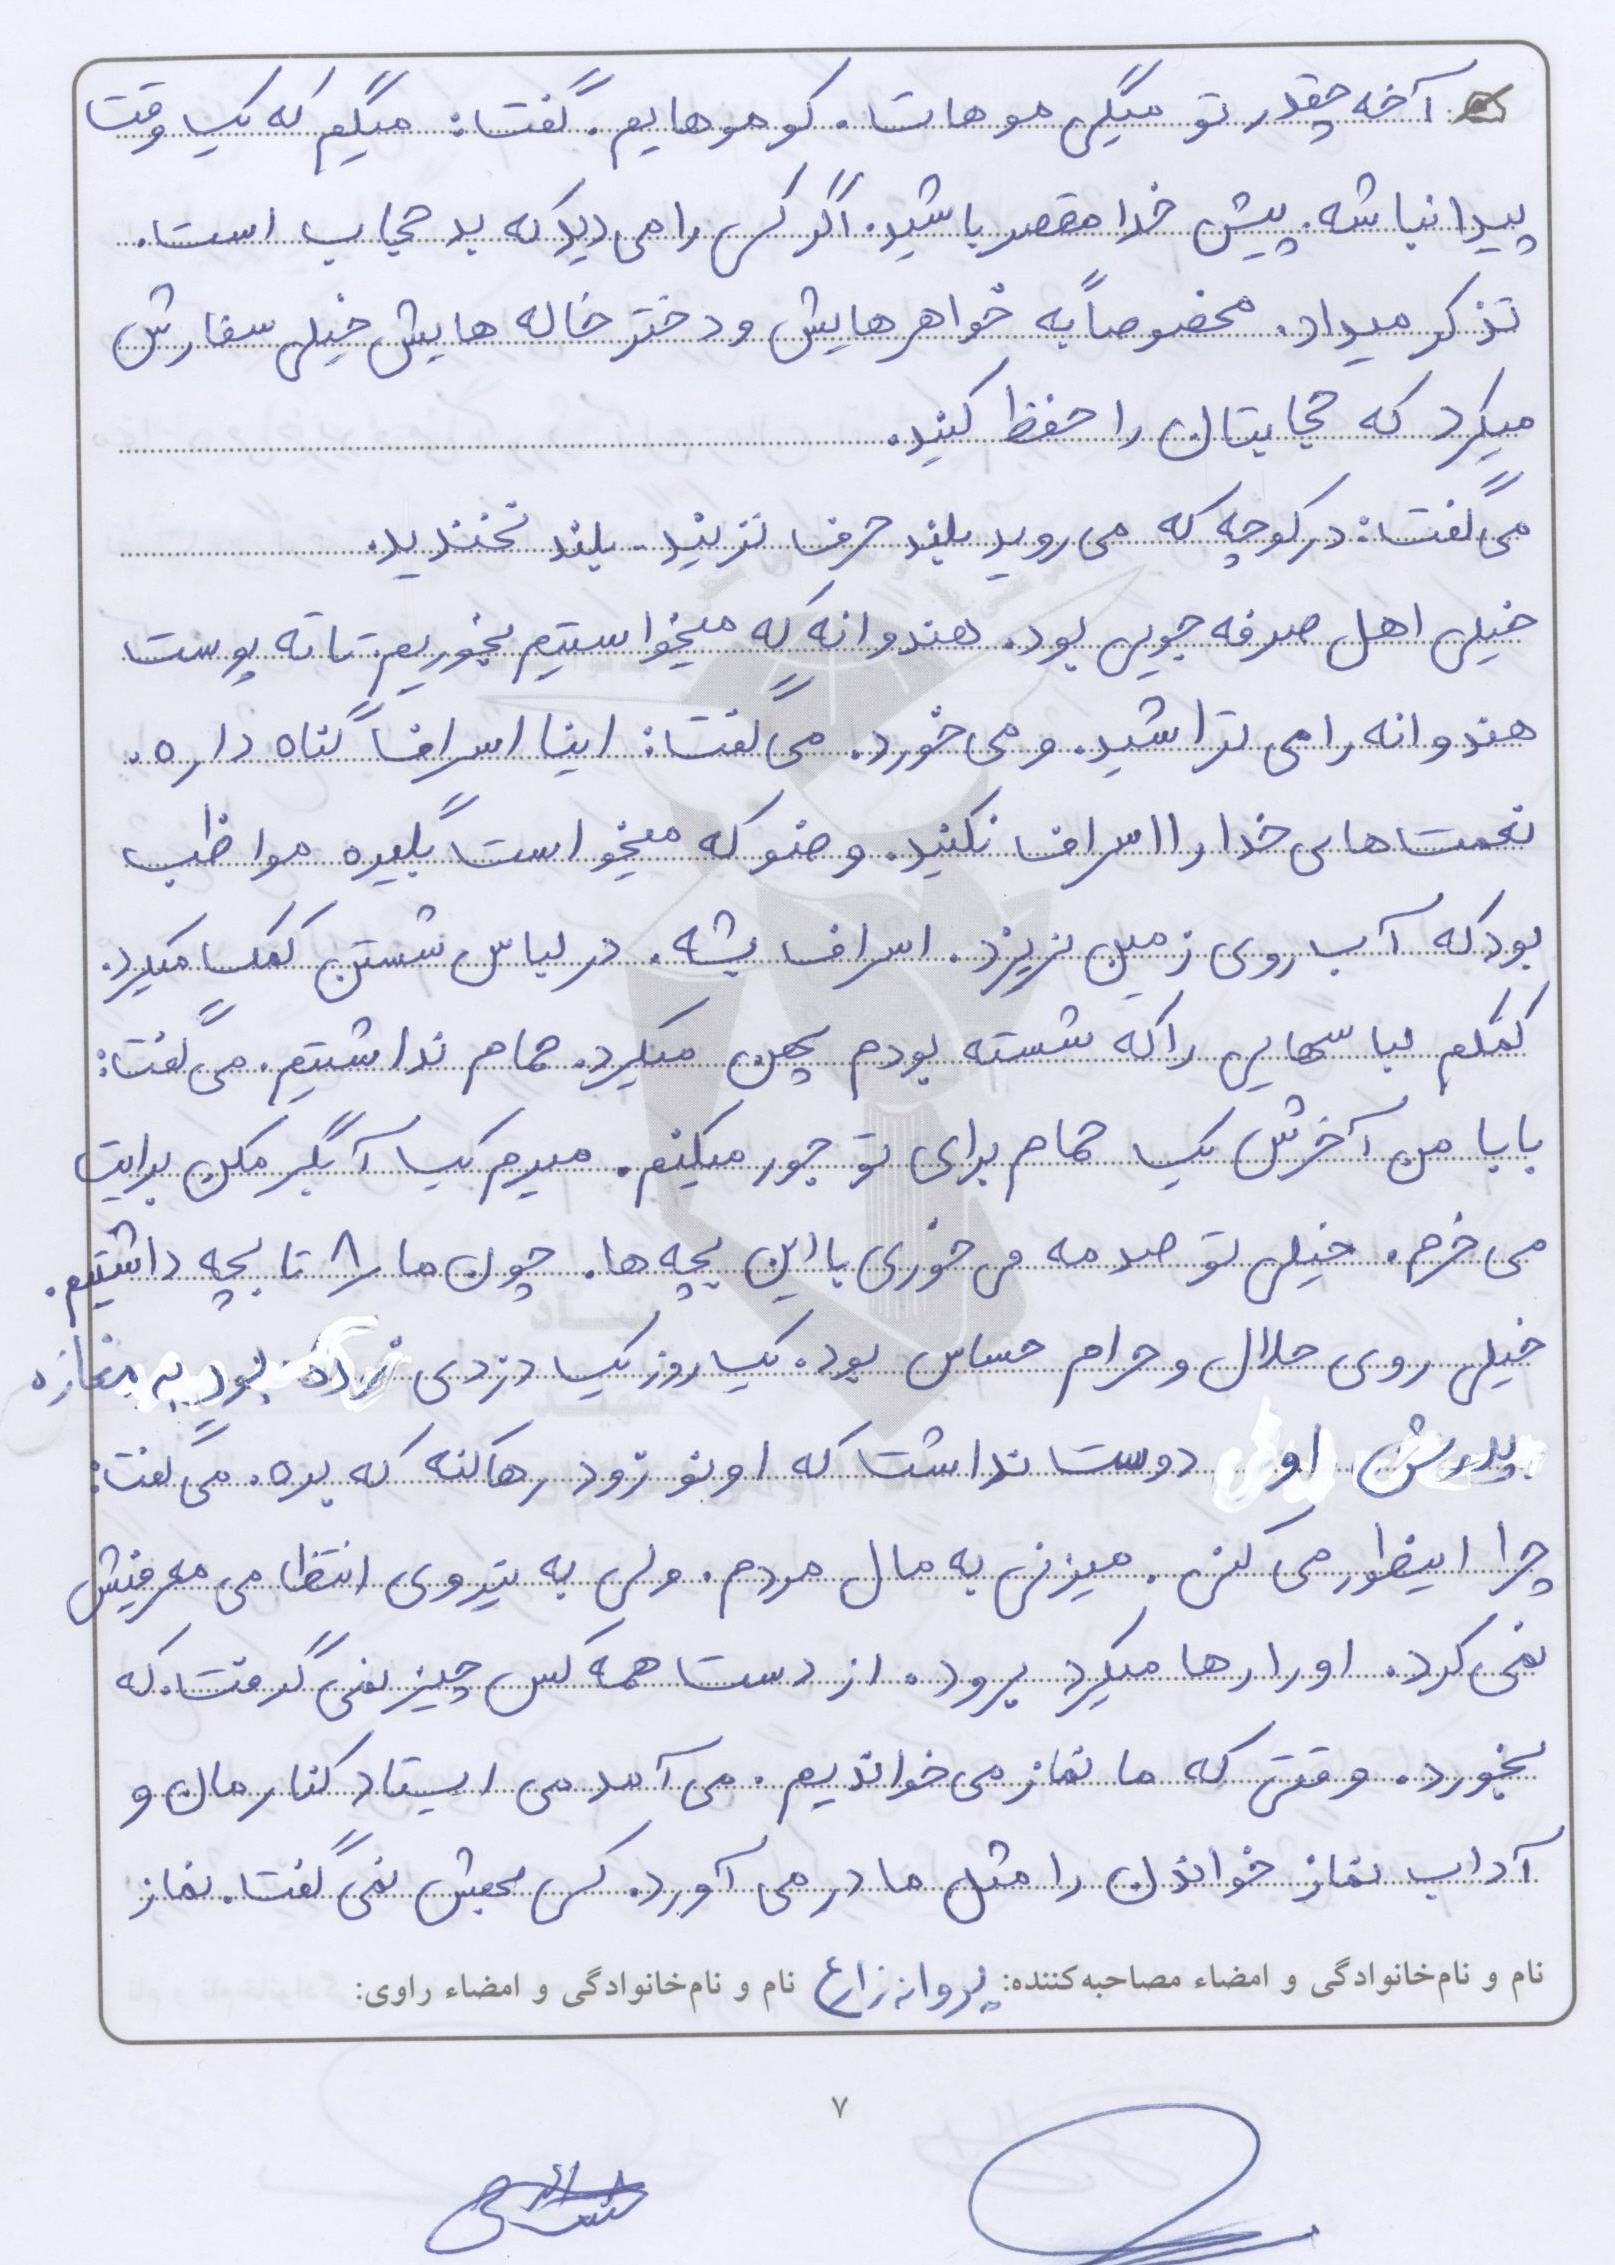 آخه چقدر تو میگی موهات. کو موهایم. گفت: میگم که یک وقت
پیدا نباشه. پیش خدا مقصر باشید. اگر کسی را می دید که بد حجاب است.
تذکر میداد. مخصوصاً به خواهرهایش و دختر خاله هایش خیلی سفارش
میکرد که حجابتان را حفظ کنید.
می گفت: در کوچه که می روید بلند حرف نزنید. بلند نخندید.
خیلی اهل صرفه جویی بود. هندوانه که میخواستیم بخوریم تا ته پوست
هندوانه را می تراشید. و می خورد. می گفت: اینا اسراف گناه داره.
نعمت های خدا را اسراف نکنید. وضو که میخواست بگیره مواظب
بود که آب روی زمین نریزد. اسراف بشه. در لباس شستن کمک میکرد.
کمکم لباسهایی را که شسته بودم پهن میکرد. حمام نداشتیم. می گفت:
بابا من آخرش یک حمام برای تو جور میکنم. میرم یک آبگرمکن برایت
می خرم. خیلی تو صدمه می خوری با این بچه ها. چون ما ۸ تا بچه داشتیم.
خیلی روی حلال و حرام حساس بود. یک روز یک دزدی زده بود به مغازه
پدرش او دوست نداشت که اونو زود رها کنه که بره. می گفت:
چرا اینطور می کنی. میزنی به مال مردم. ولی به نیروی انتظامی معرفیش
نمی کرد. او را رها میکرد برود. از دست همه کس چیز نمی گرفت. که
بخورد. وقتی که ما نماز می خواندیم. می آمد می ایستاد کنارمان و
آداب نماز خواندن را مثل ما در می آورد. کسی بهش نمی گفت. نماز
نام و نام‌خانوادگی و امضاء مصاحبه‌کننده: پروانه زارع نام و نام‌خانوادگی و امضاء راوی:
۷